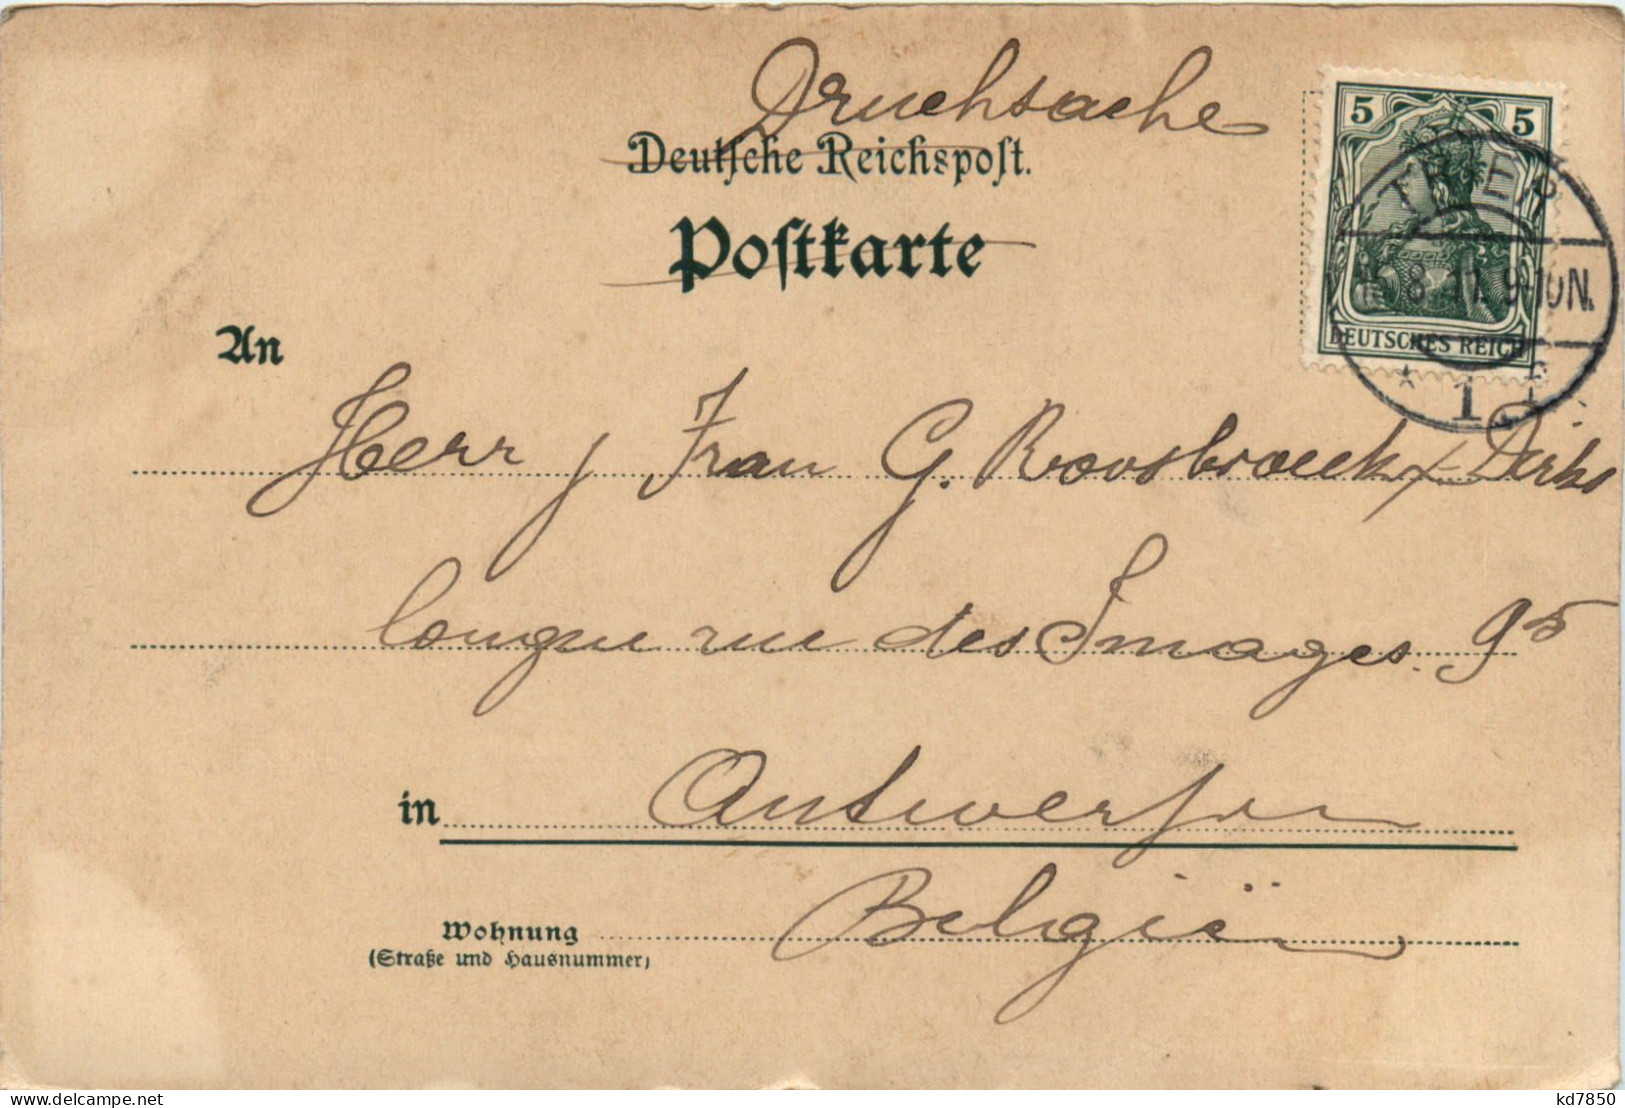 Drucksache
Deutsche Reichspost.
Postkarte
5 5
DEUTSCHES REICH
TRIER
8.11. 9-10N.
* 1
An
Herr / Frau G. Roosbroeck x Dirks
longue rue des Images. 95
in Antwerpen
Belgiën
Wohnung
(Straße und Hausnummer)
kd7850